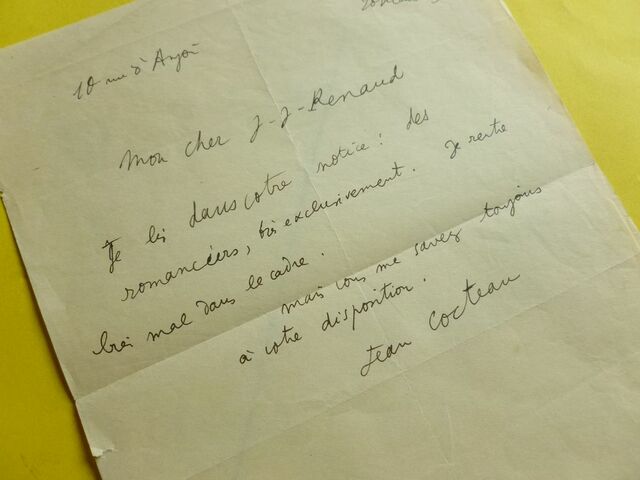 10 rue d'Anjou
Mon cher J-J-Renaud
Je lis dans votre notice : des
romanciers, très exclusivement. Je rentre
très mal dans le cadre.
mais vous me savez toujours
à votre disposition.
Jean Cocteau